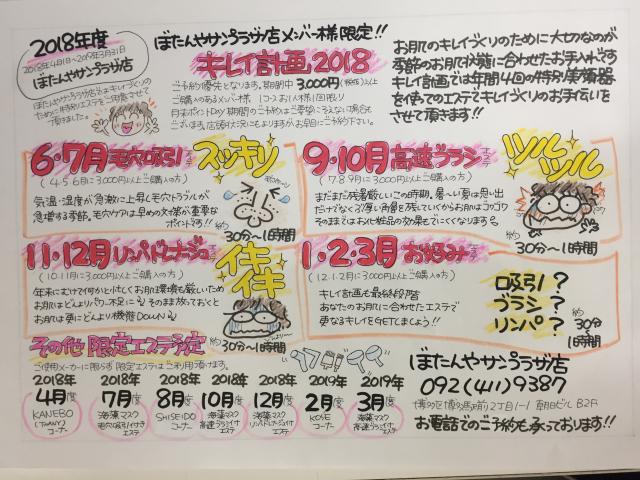 2018年度
2018年4月1日〜2019年3月31日
ぼたんやサンプラザ店
ぼたんやサンプラザ店はキレイづくりの
ために特別エステをご用意させて
頂きました。
ぼたんやサンプラザ店メンバー様限定!!
キレイ計画2018
ご予約優先となります。期間中3,000円(税抜)以上
ご購入のあるメンバー様 1コースお1人様1回限り
お肌のキレイづくりのために大切なのが
季節のお肌の状態に合わせたお手入れです
キレイ計画では年間4回の特別美容器
を使ってのエステでキレイづくりのお手伝いを
させて頂きます!!
6・7月 毛穴吸引エステ
スッキリ
(4・5・6月に3,000円以上ご購入の方)
気温・湿度が急激に上昇し毛穴トラブルが
急増する季節。毛穴ケアは早めの対策が重要な
ポイントです!!
約30分〜1時間
9・10月 高速ブラシエステ
ツルツル
(7・8・9月に3,000円以上ご購入の方)
まだまだ残暑厳しいこの時期。暑〜い夏は思い出
だけでなく厚い角質を残していくからお肌はゴワゴワ
そのままではお化粧品の効果もでにくくなります
約30分〜1時間
11・12月 リンパドレナージュ
イキイキ
(10・11月に3,000円以上ご購入の方)
年末にむけて何かと忙しくお肌環境も厳しいため
お肌はどんよりパワー不足に そのまま放っておくと
お肌は更にどんより機能DOWN
約30分〜1時間
1・2・3月 お好みエステ
(12・1・2月に3,000円以上ご購入の方)
キレイ計画も最終段階
あなたのお肌に合わせたエステで
更なるキレイをGETしましょう!!
吸引?
ブラシ?
リンパ?
約30分〜1時間
その他 限定エステ予定
ご使用メーカーに限らず限定エステはご利用頂けます。
2018年 4月度 KANEBO (TWANY) コーナー
2018年 7月度 海藻マスク 毛穴吸引付きエステ
2018年 8月度 SHISEIDO コーナー
2018年 10月度 海藻マスク 高速ブラシ付エステ
2018年 12月度 海藻マスク リンパドレナージュ付エステ
2019年 2月度 KOSE コーナー
2019年 3月度 海藻マスク 高速ブラシ付エステ
ぼたんやサンプラザ店
092(411)9387
博多区博多駅前2丁目1-1 朝日ビルB2F
お電話でのご予約も承っております!!